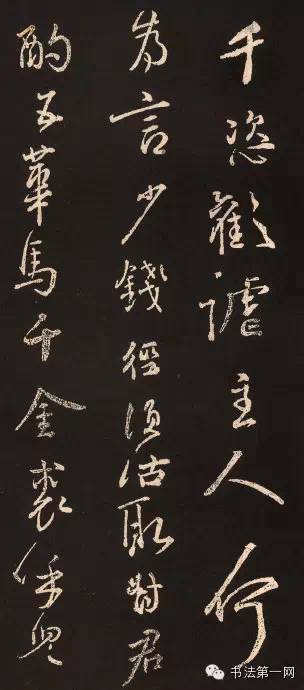 千恣歡謔主人何
為言少錢徑須沽取對君
酌五華馬千金裘呼兒
书法第一网